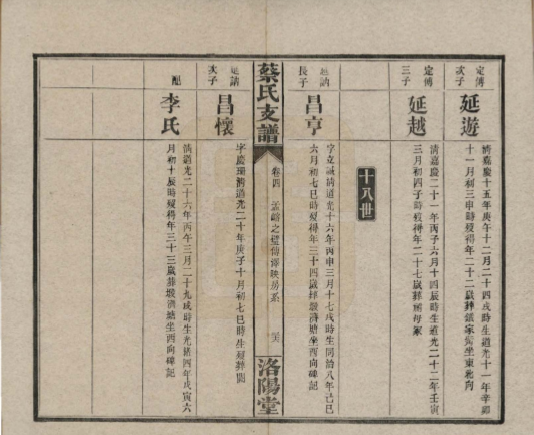 定傳次子
延遊
清嘉慶十五年庚午十二月二十四戌時生道光十一年辛卯
十一月初三申時歿得年二十二歲葬 家 坐東 向
定傳三子
延越
清嘉慶二十一年丙子六月十四辰時生道光二十二年壬寅
三月初四子時歿得年二十七歲葬 母冢
十八世
延訥長子
昌亨
字立誠清道光十六年丙申三月十七戌時生同治八年己巳
六月初七巳時歿得年三十四歲葬 濟塘坐西向 碑記
蔡氏支譜
卷四
之 傳 房系
洛陽堂
延訥次子
昌懷
字慶 清道光二十年庚子十月初七巳時生歿葬闕
配
李氏
清道光二十六年丙午三月二十九戌時生光緒四年戊寅六
月初十辰時歿得年三十三歲葬 濟塘坐西向碑記